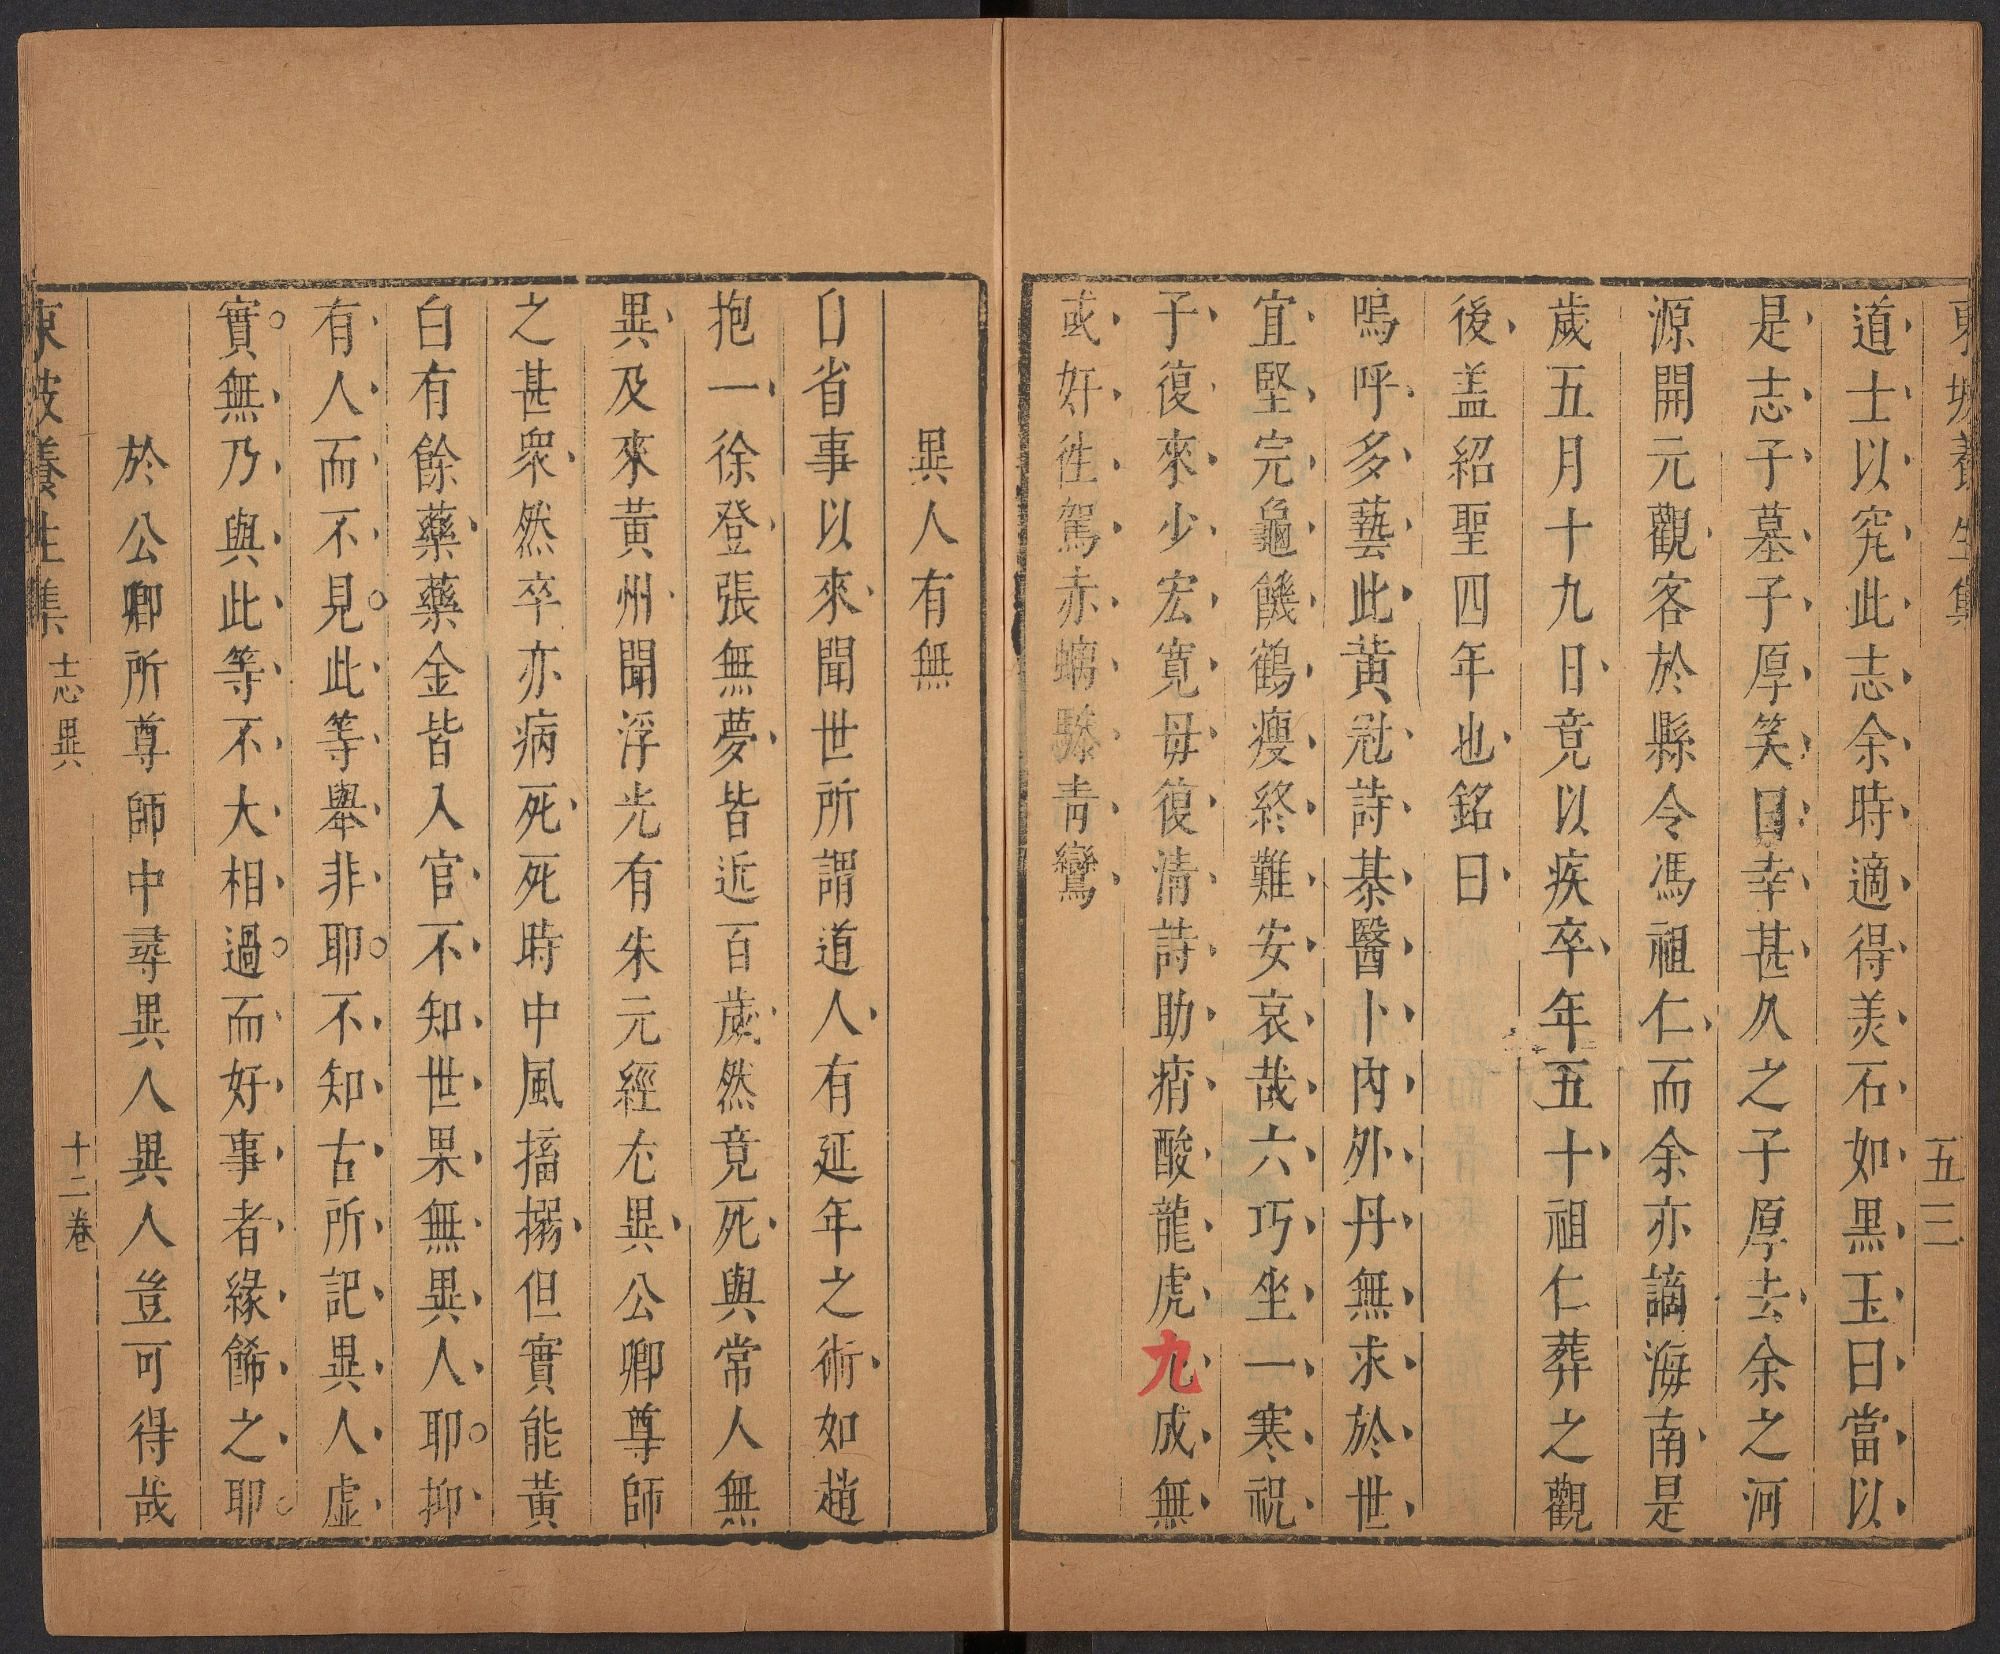 東坡養生集
五三
道士以究此志余時適得美石如黑玉曰當以
是志子墓子厚笑曰幸甚久之子厚去余之河
源開元觀客於縣令馮祖仁而余亦謫海南是
歲五月十九日竟以疾卒年五十祖仁葬之觀
後盖紹聖四年也銘曰
嗚呼多藝此黃冠詩棊醫卜內外丹無求於世
宜堅完龜饑鶴瘦終難安哀哉六巧坐一寒祝
子復來少宏寬毋復清詩助痟酸龍虎九成無
或奸徃駕赤螭驂青鸞
異人有無
自省事以來聞世所謂道人有延年之術如趙
抱一徐登張無夢皆近百歲然竟死與常人無
異及來黃州聞浮光有朱元經尤異公卿尊師
之甚衆然卒亦病死死時中風搐搦但實能黃
白有餘藥藥金皆入官不知世果無異人耶抑
有人而不見此等舉非耶不知古所記異人虛
實無乃與此等不大相過而好事者緣餙之耶
於公卿所尊師中尋異人異人豈可得哉
東坡養生集 志異 十二卷